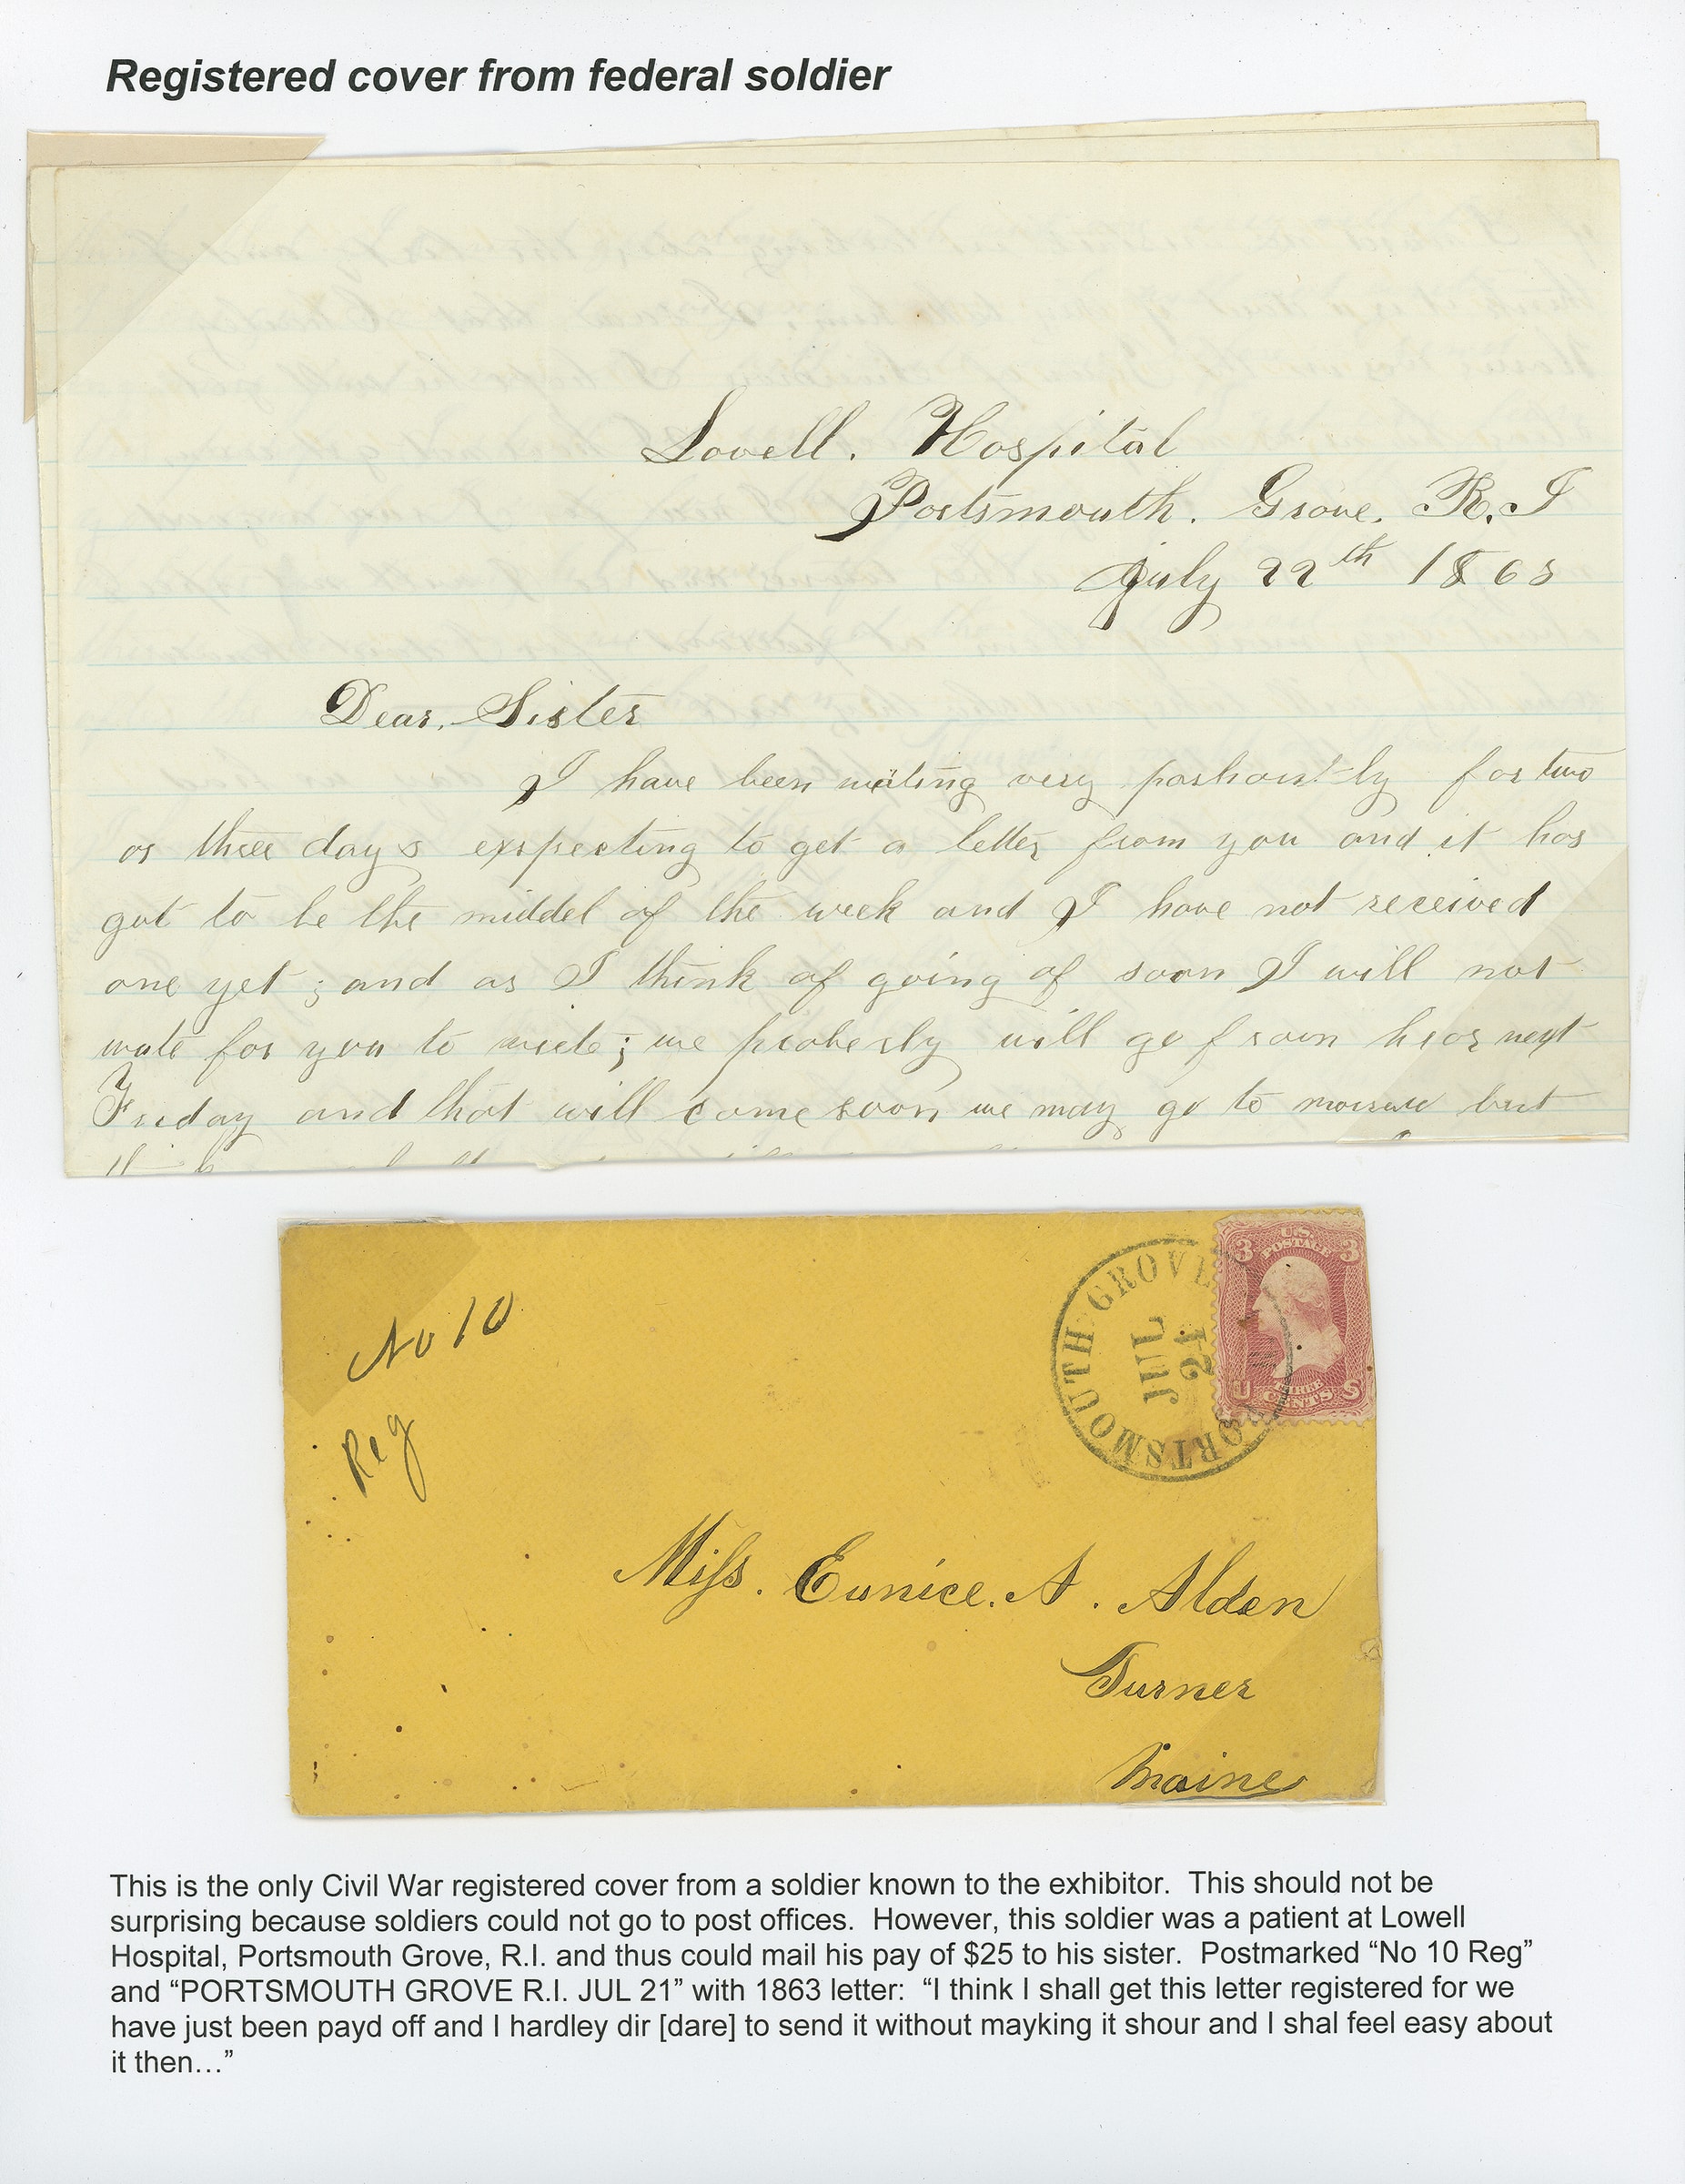 Registered cover from federal soldier
Lovell. Hospital
Portsmouth. Grove. R.I
July 22th 1863
Dear, Sister
I have been waiting very pashountly for two
or three days exspecting to get a letter from you and it has
got to be the middel of the week and I have not received
one yet ; and as I think of going of soon I will not
wate for you to write ; we proberly will go from hear next
Friday and that will come soon we may go to morrow but
No 10
Reg
PORTSMOUTH GROVE
JUL
21
U.S.
POSTAGE
3 3
U THREE S
CENTS
Miss. Eunice. A. Alden
Turner
Maine
This is the only Civil War registered cover from a soldier known to the exhibitor. This should not be
surprising because soldiers could not go to post offices. However, this soldier was a patient at Lowell
Hospital, Portsmouth Grove, R.I. and thus could mail his pay of $25 to his sister. Postmarked “No 10 Reg”
and “PORTSMOUTH GROVE R.I. JUL 21” with 1863 letter: “I think I shall get this letter registered for we
have just been payd off and I hardley dir [dare] to send it without mayking it shour and I shal feel easy about
it then…”